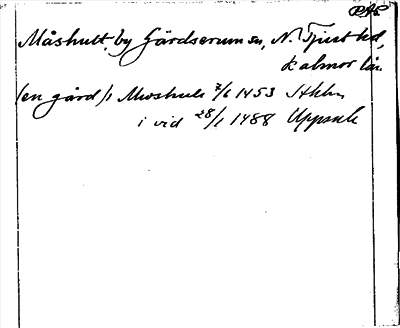 PAL
Måshult, by Gärdserum sn, N. Tjust hd,
Kalmar län.
(en gård) i Mwshule 7/6 1453 Sthlm
i vid 28/1 1488 Uppsale